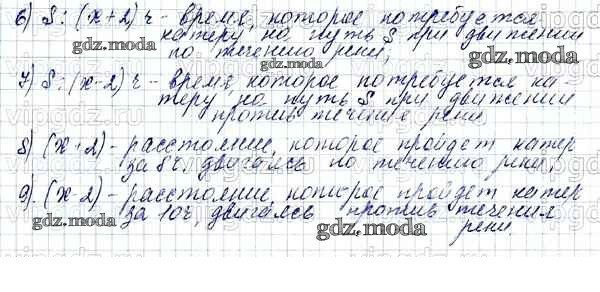 6) S : (x+2) ч - время, которое потребуется
катеру на путь S при движении
gdz.moda
gdz.moda
по течению реки;
gdz.moda
7) S : (x-2) ч - время, которое потребуется ка-
теру на путь S при движении
против течение реки.
8) (x+2) - расстояние, которое пройдет катер
за 8 ч, двигаясь по течению реки;
gdz.moda
9). (x-2) - расстояние, которое пройдет катер
за 10 ч, двигаясь против течения
gdz.moda
gdz.moda
реки